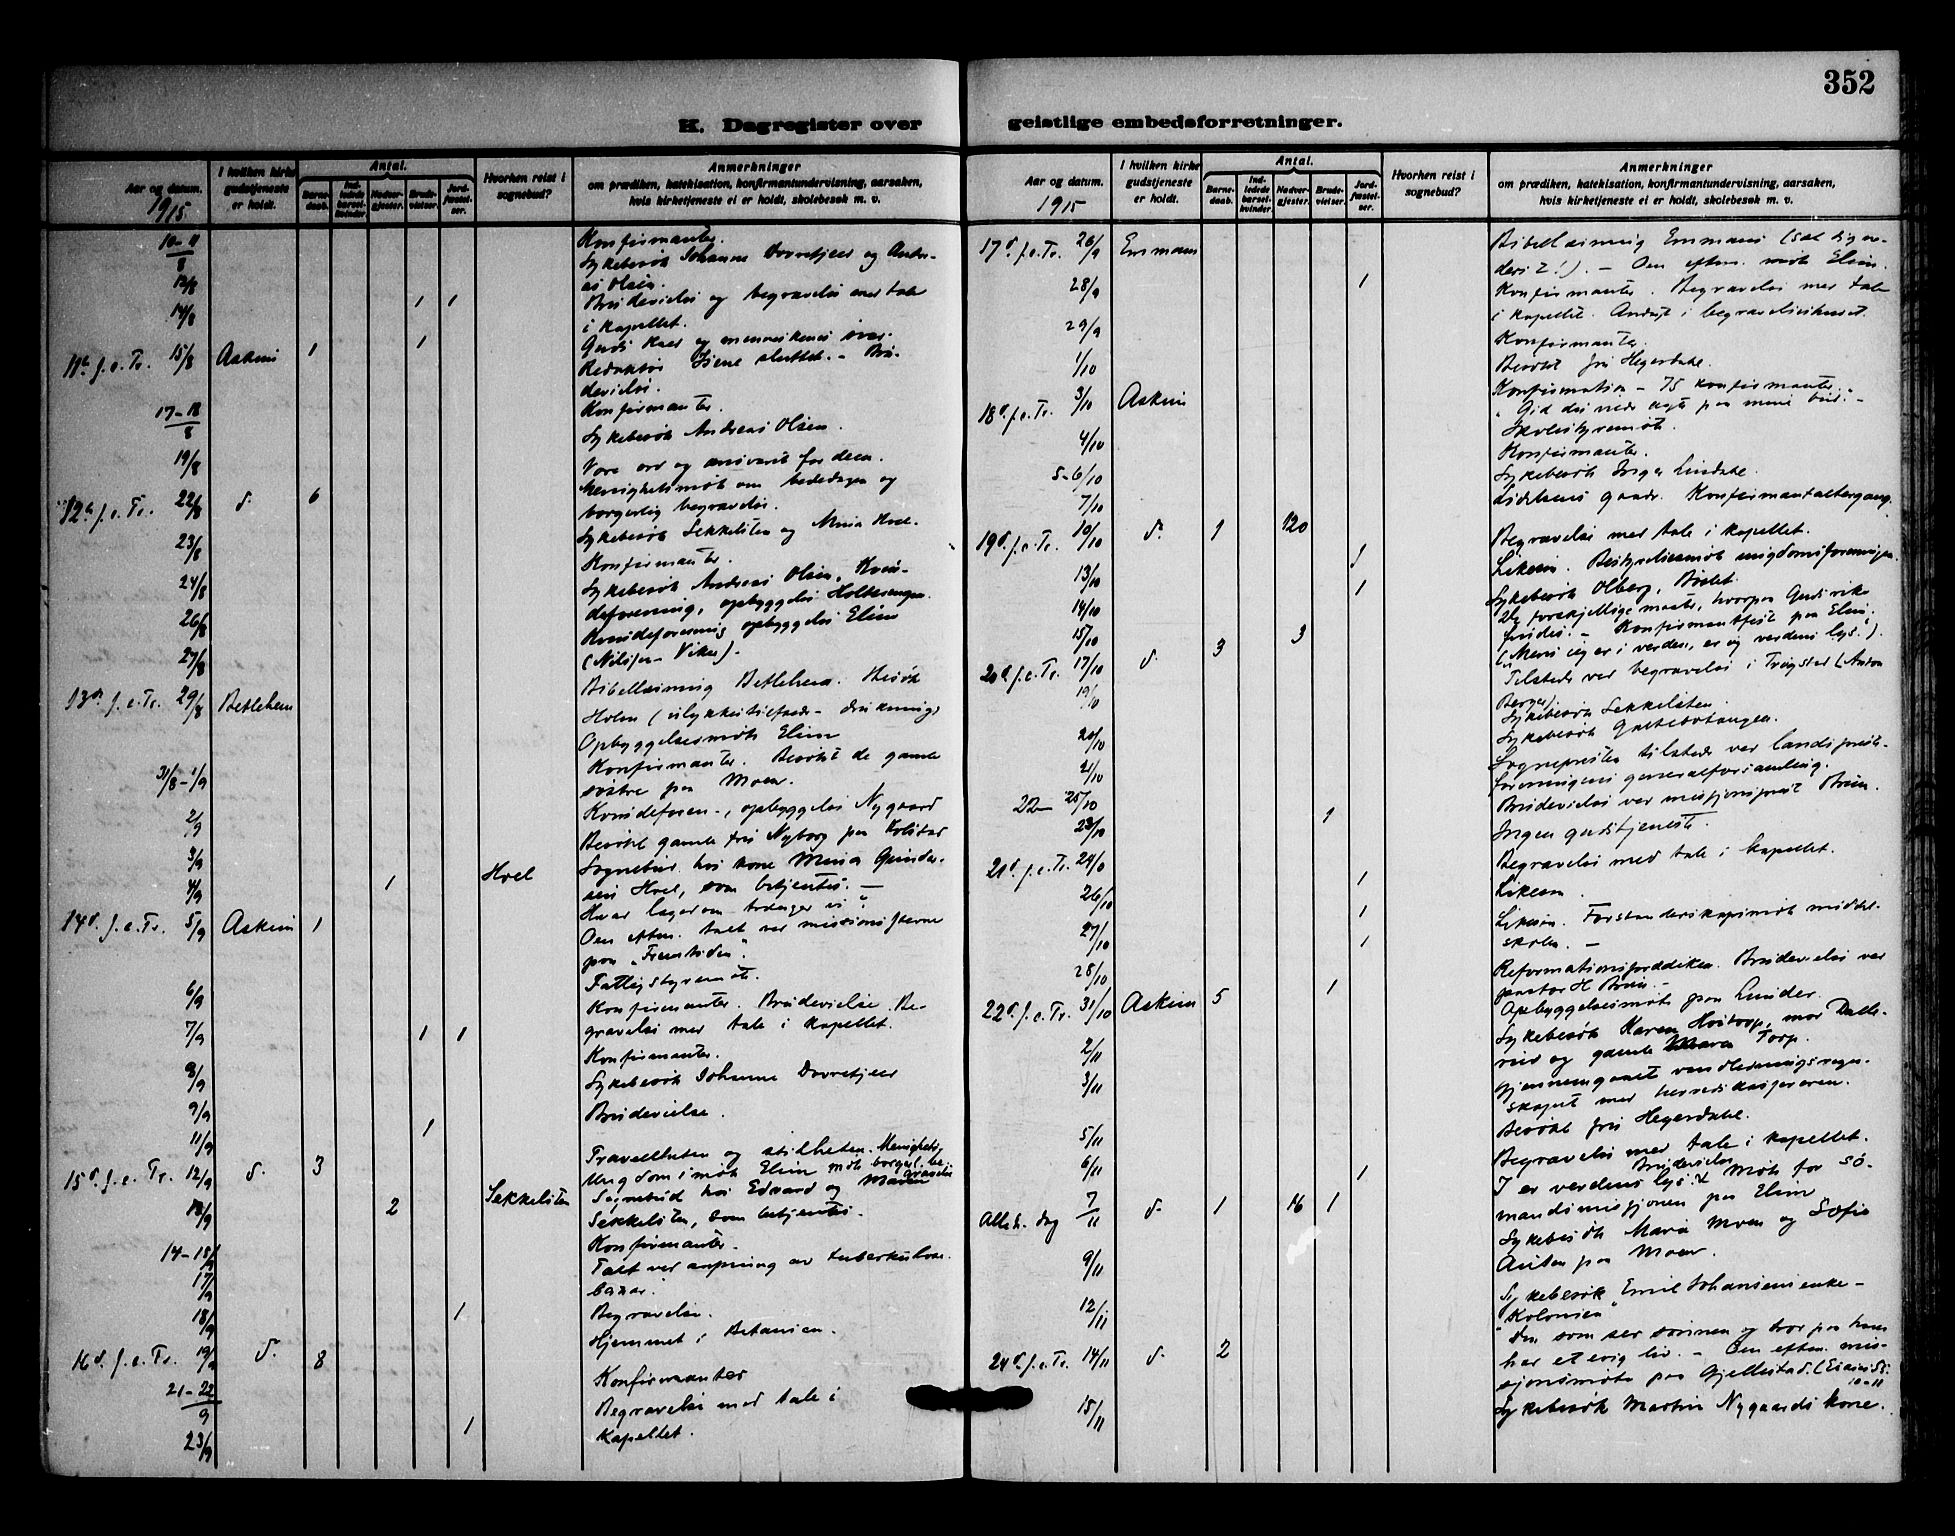 352
K. Dagregister over geistlige embedsforretninger.
Aar og datum.
1915
I hvilken kirke gudstjeneste er holdt.
Antal.
Barnedaab.
Indledede barselkvinder.
Nadvergjester.
Brudevielser.
Jordfæstelser.
Hvorhen reist i sognebud?
Anmerkninger
om prædiken, katekisation, konfirmantundervisning, aarsaken,
hvis kirketjeneste ei er holdt, skolebesøk m. v.
10-11/8 Konfirmanter.
Sykebesøk Johanne Dovrefjeld og Andreas Olsen.
14/8 1 1 Brudevielse og begravelse med tale
i kapellet.
11te s. e. Tr. 15/8 Askim 1 1 Guds kald og menneskenes svar.
Brudevielse.
17-18/8 Konfirmanter.
19/8 Sykebesøk Andreas Olsen.
12te s. e. Tr. 22/8 d. 6 Vore ord og ansvaret for dem.
Menighetsmøte om bededagen og
borgerlig begravelse.
23/8 Sykebesøk Sekkelsten og Mina Hoel.
24/8 Konfirmanter.
26/8 Sykebesøk Andreas Olsen. Kvindeforening, opbyggelse
27/8 Kvindeforening, opbyggelse Elim
13de s. e. Tr. 29/8 Betlehem Bibellæsning Betlehem. Besøk
Holm (ulykkestilfælde - drukning)
Opbyggelsesmøte Elim
31/8-1/9 Konfirmanter. Besøkt de gamle
søstre paa Moen.
2/9 Kvindeforen-, opbyggelse Nygaard
3/9 Besøkt gamle fru Nyborg paa Kolstad
4/9 1 Hoel Sognebud hos kone Mina Gundersen Hoel, som betjentes. -
14de s. e. Tr. 5/9 Askim 1 Hvad lægedom trænger vi?
Om eftm. talt ved missionsstevne
paa "Fremtiden".
6/9 Fattigstyremøte.
7/9 1 1 Konfirmanter. Brudevielse. Begravelse med tale i kapellet.
8/9 Konfirmanter.
9/9 Sykebesøk Johanne Dovrefjeld
11/9 1 Brudevielse.
15de s. e. Tr. 12/9 d. 3 Travelheten og stilheten. Menighets-
Ungdomsmøte Elim møte borgerl. begravelse
13/9 2 Sekkelsten Sognebud hos Edvard og Maren
Sekkelsten, som betjentes.
14-15/9 Konfirmanter.
17/9 Talt ved aapning av tuberkulosebazar.
18/9 1 Begravelse.
16de s. e. Tr. 19/9 d. 8 Hjemmet i Betanien.
21-22/9 Konfirmanter
23/9 1 Begravelse med tale i
kapellet.
Aar og datum.
1915
I hvilken kirke gudstjeneste er holdt.
Antal.
Barnedaab.
Indledede barselkvinder.
Nadvergjester.
Brudevielser.
Jordfæstelser.
Hvorhen reist i sognebud?
Anmerkninger
om prædiken, katekisation, konfirmantundervisning, aarsaken,
hvis kirketjeneste ei er holdt, skolebesøk m. v.
17de s. e. Tr. 26/9 Emmaus Bibellæsning Emmaus
- Om eftm. møte Elim.
28/9 1 Konfirmanter. Begravelse med tale
i kapellet. Andagt i begravelseshuset.
29/9 Konfirmanter.
1/10 Besøkt fru Hegerdahl.
18de s. e. Tr. 3/10 Askim Konfirmation - 75 konfirmanter.
"Gid du vilde agte paa mine bud." -
4/10 Skolestyremøte.
5-6/10 Konfirmanter.
7/10 Sykebesøk Inga Lindahl.
19de s. e. Tr. 10/10 d. 1 120 Konfirmantaltergang.
1 Begravelse med tale i kapellet.
13/10 1 Likeom. Bestyrelsesmøte ungdomsforeningen.
14/10 Sykebesøk Olberg, Bødet.
15/10
20de s. e. Tr. 17/10 d. 3 3 De forskjellige maater, hvorpaa Guds rike
lindes. - Konfirmantfest paa Elim.
(Mens jeg er i verden, er jeg verdens lys.).
19/10 Tilstede ved begravelse i Trøgstad (Anton
Berger).
20/10 Sykebesøk Sekkelsten.
21/10 Sykebesøk
22-25/10 Sognepresten tilstede ved landsprestforeningens generalforsamling.
23/10 1 Brudevielse ved misjonsprest Bruun.
21de s. e. Tr. 24/10 Ingen gudstjeneste.
26/10 1 Begravelse med tale i kapellet.
27/10 1 Likeom.
28/10 1 Likeom. Forstanderskapsmøte middelskolen. -
22de s. e. Tr. 31/10 Askim 5 1 Reformationsprædiken. Brudevielse ved
pastor H Bruun. -
Opbyggelsesmøte paa Lunder.
2/11 Sykebesøk Karen Hostorp, mor
og gamle Maren Torp.
3/11 Gjennemgaaet vandledningsregnskapet med herredskassereren.
5/11 Besøkt fru Hegerdahl.
6/11 1 Begravelse med tale i kapellet.
Alleh. dag 7/11 d. 1 16 1 Brudevielse
I er verdens lys. Møte for sømandsmisjonen paa Elim
9/11 Sykebesøk Maria Moen og Sofie
Auten paa Moen.
12/11 Sykebesøk Emil Johansens enke -
"Kolonien"
24de s. e. Tr. 14/11 d. 2 Den som ser sønnen og tror paa ham
har et evig liv. - Om eftm. misjonsmøte paa Gjellestad.
15/11 Sykebesøk Martin Nygaards kone.